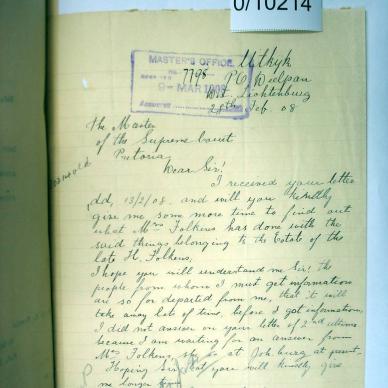 0/10214
MASTER'S OFFICE
No 7798
9 - MAR 1908
Answered
Uitkyk
P.O. Deelpan
Dist. Lichtenburg
28th Feb. 08
The Master
of the Supreme Court
Pretoria
Dear Sir!
I received your letter
dd, 13/2/08. and will you kindly
give me some more time to find out
what Mrs Folkens has done with the
said things belonging to the Estate of the
late H. Folkens.
I hope you will understand me Sir! the
people from whom I must get information
are so far departed from me, that it will
take a way lots of time, before I got information.
I did not answer on your letter of 2nd ultimo
because I am waiting for an answer from
Mrs Folkens, is at Joh'burg at present.
Hoping Sir that you will kindly give
me longer